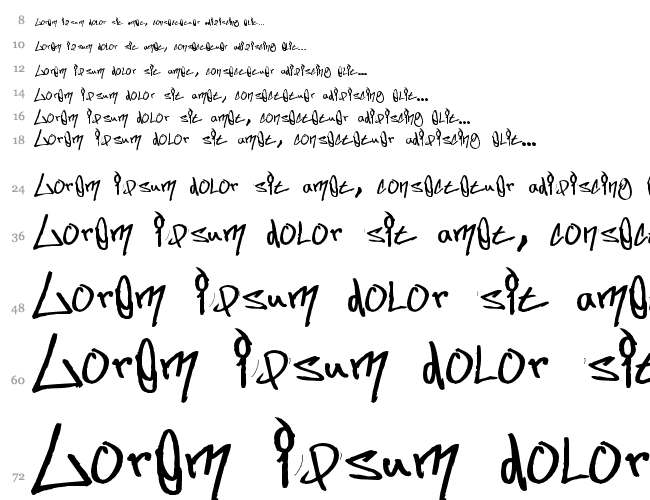 8 Lorem ipsum dolor sit amet, consectetuer adipiscing elit...
10 Lorem ipsum dolor sit amet, consectetuer adipiscing elit...
12 Lorem ipsum dolor sit amet, consectetuer adipiscing elit...
14 Lorem ipsum dolor sit amet, consectetuer adipiscing elit...
16 Lorem ipsum dolor sit amet, consectetuer adipiscing elit...
18 Lorem ipsum dolor sit amet, consectetuer adipiscing elit...
24 Lorem ipsum dolor sit amet, consectetuer adipiscing
36 Lorem ipsum dolor sit amet, consec
48 Lorem ipsum dolor sit ame
60 Lorem ipsum dolor sit
72 Lorem ipsum dolor